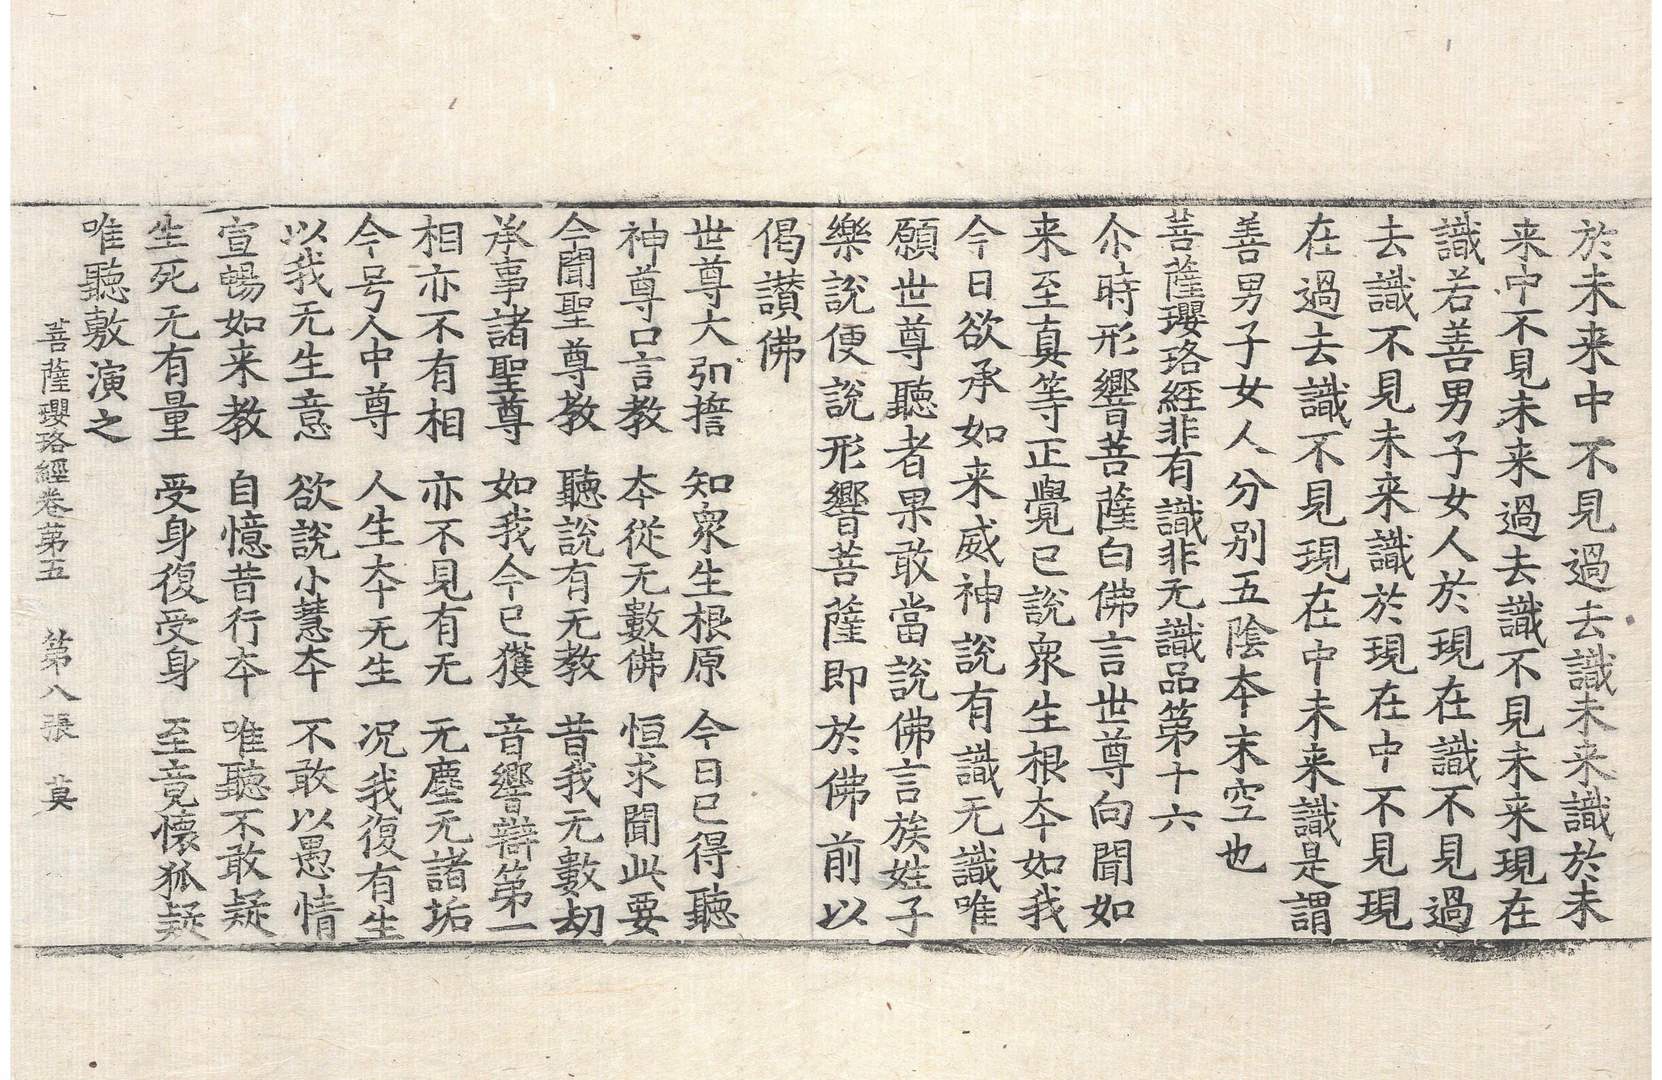 於未来中不見過去識未来識於未
来中不見未来過去識不見未来現在
識若善男子女人於現在識不見過
去識不見未来識於現在中不見現
在過去識不見現在中未来識是謂
善男子女人分别五陰夲末空也
菩薩瓔珞經非有識非无識品第十六
尒時形響菩薩白佛言世尊向聞如
来至真等正覺已說衆生根夲如我
今日欲承如来威神說有識无識唯
願世尊聽者果敢當說佛言族姓子
樂說便說形響菩薩即於佛前以
偈讃佛
世尊大弘擔 知衆生根原 今日已得聽
神尊口言教 夲從无數佛 恒求聞此要
今聞聖尊教 聽說有无教 昔我无數劫
承事諸聖尊 如我今已獲 音響辯第一
相亦不有相 亦不見有无 无塵无諸垢
今号人中尊 人生夲无生 况我復有生
以我无生意 欲說小慧夲 不敢以愚情
宣暢如来教 自憶昔行夲 唯聽不敢疑
生死无有量 受身復受身 至竟懷狐疑
唯聽敷演之
菩薩瓔珞經卷苐五 第八張 莫